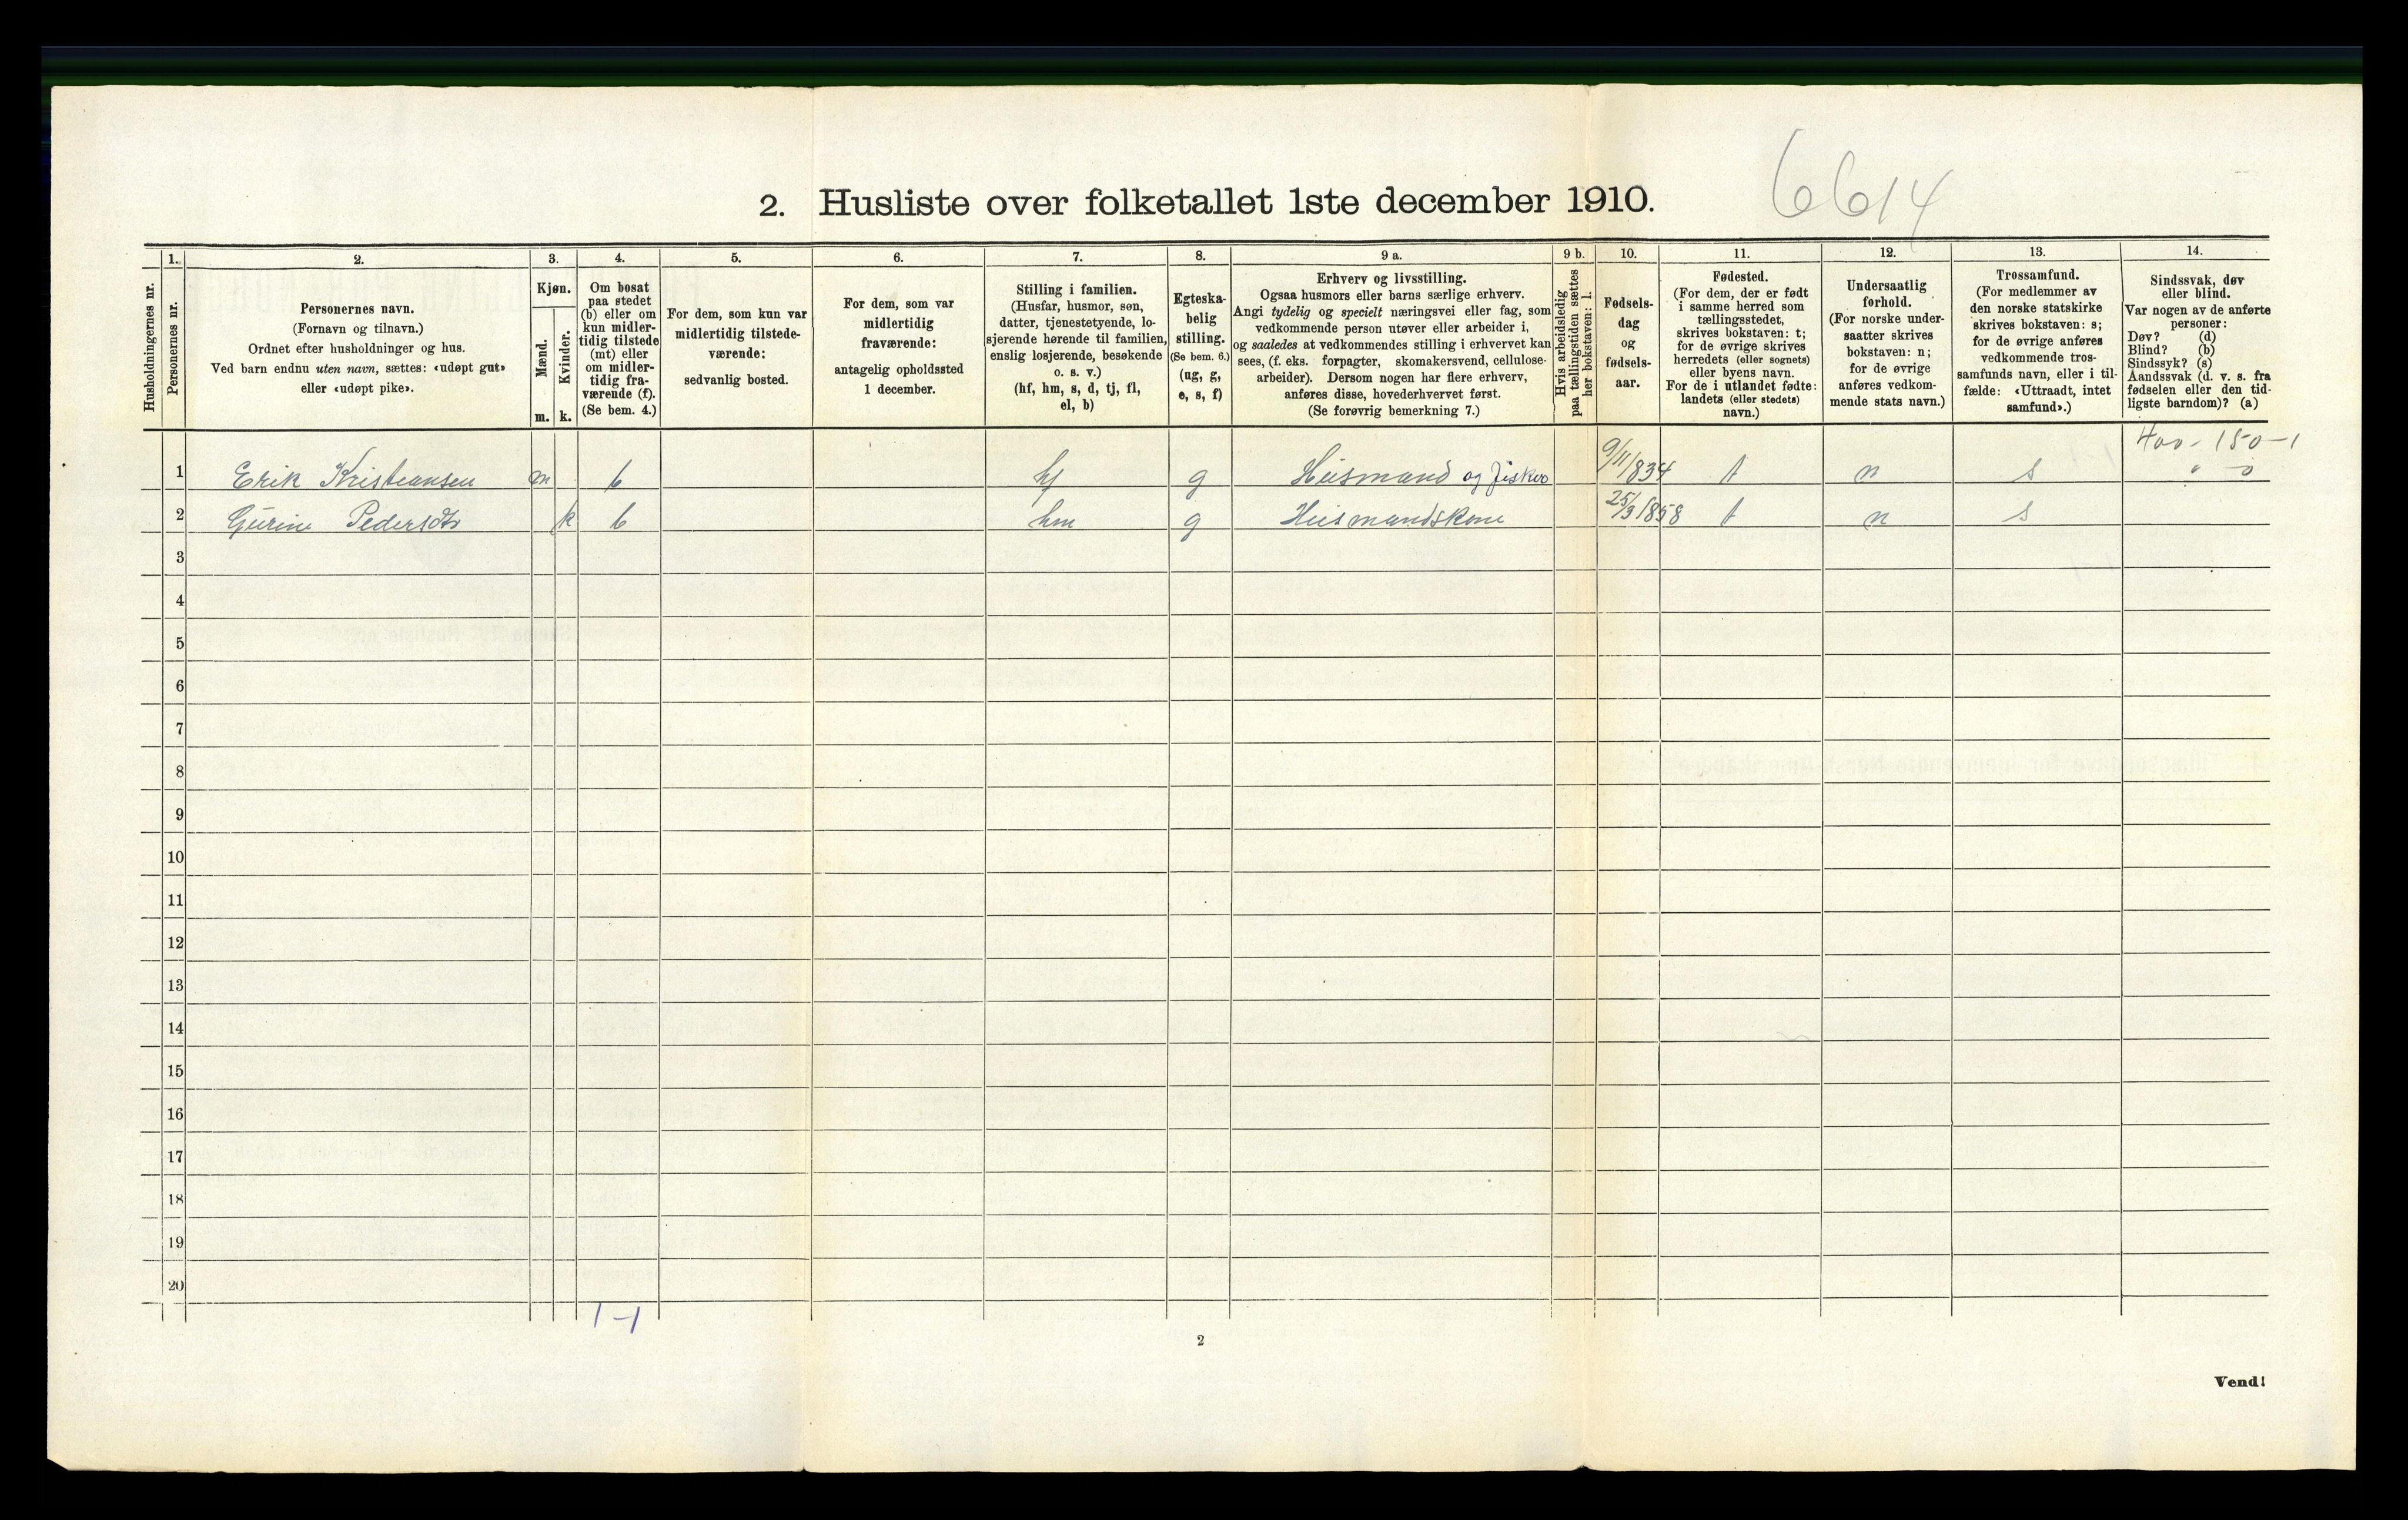 6614
2. Husliste over folketallet 1ste december 1910.
Husholdningernes nr.
1.
Personernes nr.
2.
Personernes navn.
(Fornavn og tilnavn.)
Ordnet efter husholdninger og hus.
Ved barn endnu uten navn, sættes: «udøpt gut»
eller «udøpt pike».
3.
Kjøn.
Mænd.
m.
Kvinder.
k.
4.
Om bosat
paa stedet
(b) eller om
kun midler-
tidig tilstede
(mt) eller
om midler-
tidig fra-
værende (f).
(Se bem. 4.)
5.
For dem, som kun var
midlertidig tilstede-
værende:
sedvanlig bosted.
6.
For dem, som var
midlertidig
fraværende:
antagelig opholdssted
1 december.
7.
Stilling i familien.
(Husfar, husmor, søn,
datter, tjenestetyende, lo-
sjerende hørende til familien,
enslig losjerende, besøkende
o. s. v.)
(hf, hm, s, d, tj, fl,
el, b)
8.
Egteska-
belig
stilling.
(Se bem. 6.)
(ug, g,
e, s, f)
9 a.
Erhverv og livsstilling.
Ogsaa husmors eller barns særlige erhverv.
Angi tydelig og specielt næringsvei eller fag, som
vedkommende person utøver eller arbeider i,
og saaledes at vedkommendes stilling i erhvervet kan
sees, (f. eks. forpagter, skomakersvend, cellulose-
arbeider). Dersom nogen har flere erhverv,
anføres disse, hovederhvervet først.
(Se forøvrig bemerkning 7.)
9 b.
Hvis arbeidsledig
paa tællingstiden sættes
her bokstaven: l.
10.
Fødsels-
dag
og
fødsels-
aar.
11.
Fødested.
(For dem, der er født
i samme herred som
tællingsstedet,
skrives bokstaven: t;
for de øvrige skrives
herredets (eller sognets)
eller byens navn.
For de i utlandet fødte:
landets (eller stedets)
navn.)
12.
Undersaatlig
forhold.
(For norske under-
saatter skrives
bokstaven: n;
for de øvrige
anføres vedkom-
mende stats navn.)
13.
Trossamfund.
(For medlemmer av
den norske statskirke
skrives bokstaven: s;
for de øvrige anføres
vedkommende tros-
samfunds navn, eller i til-
fælde: «Uttraadt, intet
samfund».)
14.
Sindssvak, døv
eller blind.
Var nogen av de anførte
personer:
Døv? (d)
Blind? (b)
Sindssyk? (s)
Aandssvak (d. v. s. fra
fødselen eller den tid-
ligste barndom)? (a)
400 - 150 - 1
1 Erik Kristiansen m b hf g Husmand og fisker 9/11/834 t n s
2 Gurine Pedersdtr k b hm g Husmandskone 25/3/858 t n s
3
4
5
6
7
8
9
10
11
12
13
14
15
16
17
18
19
20
1 - 1
2
Vend!